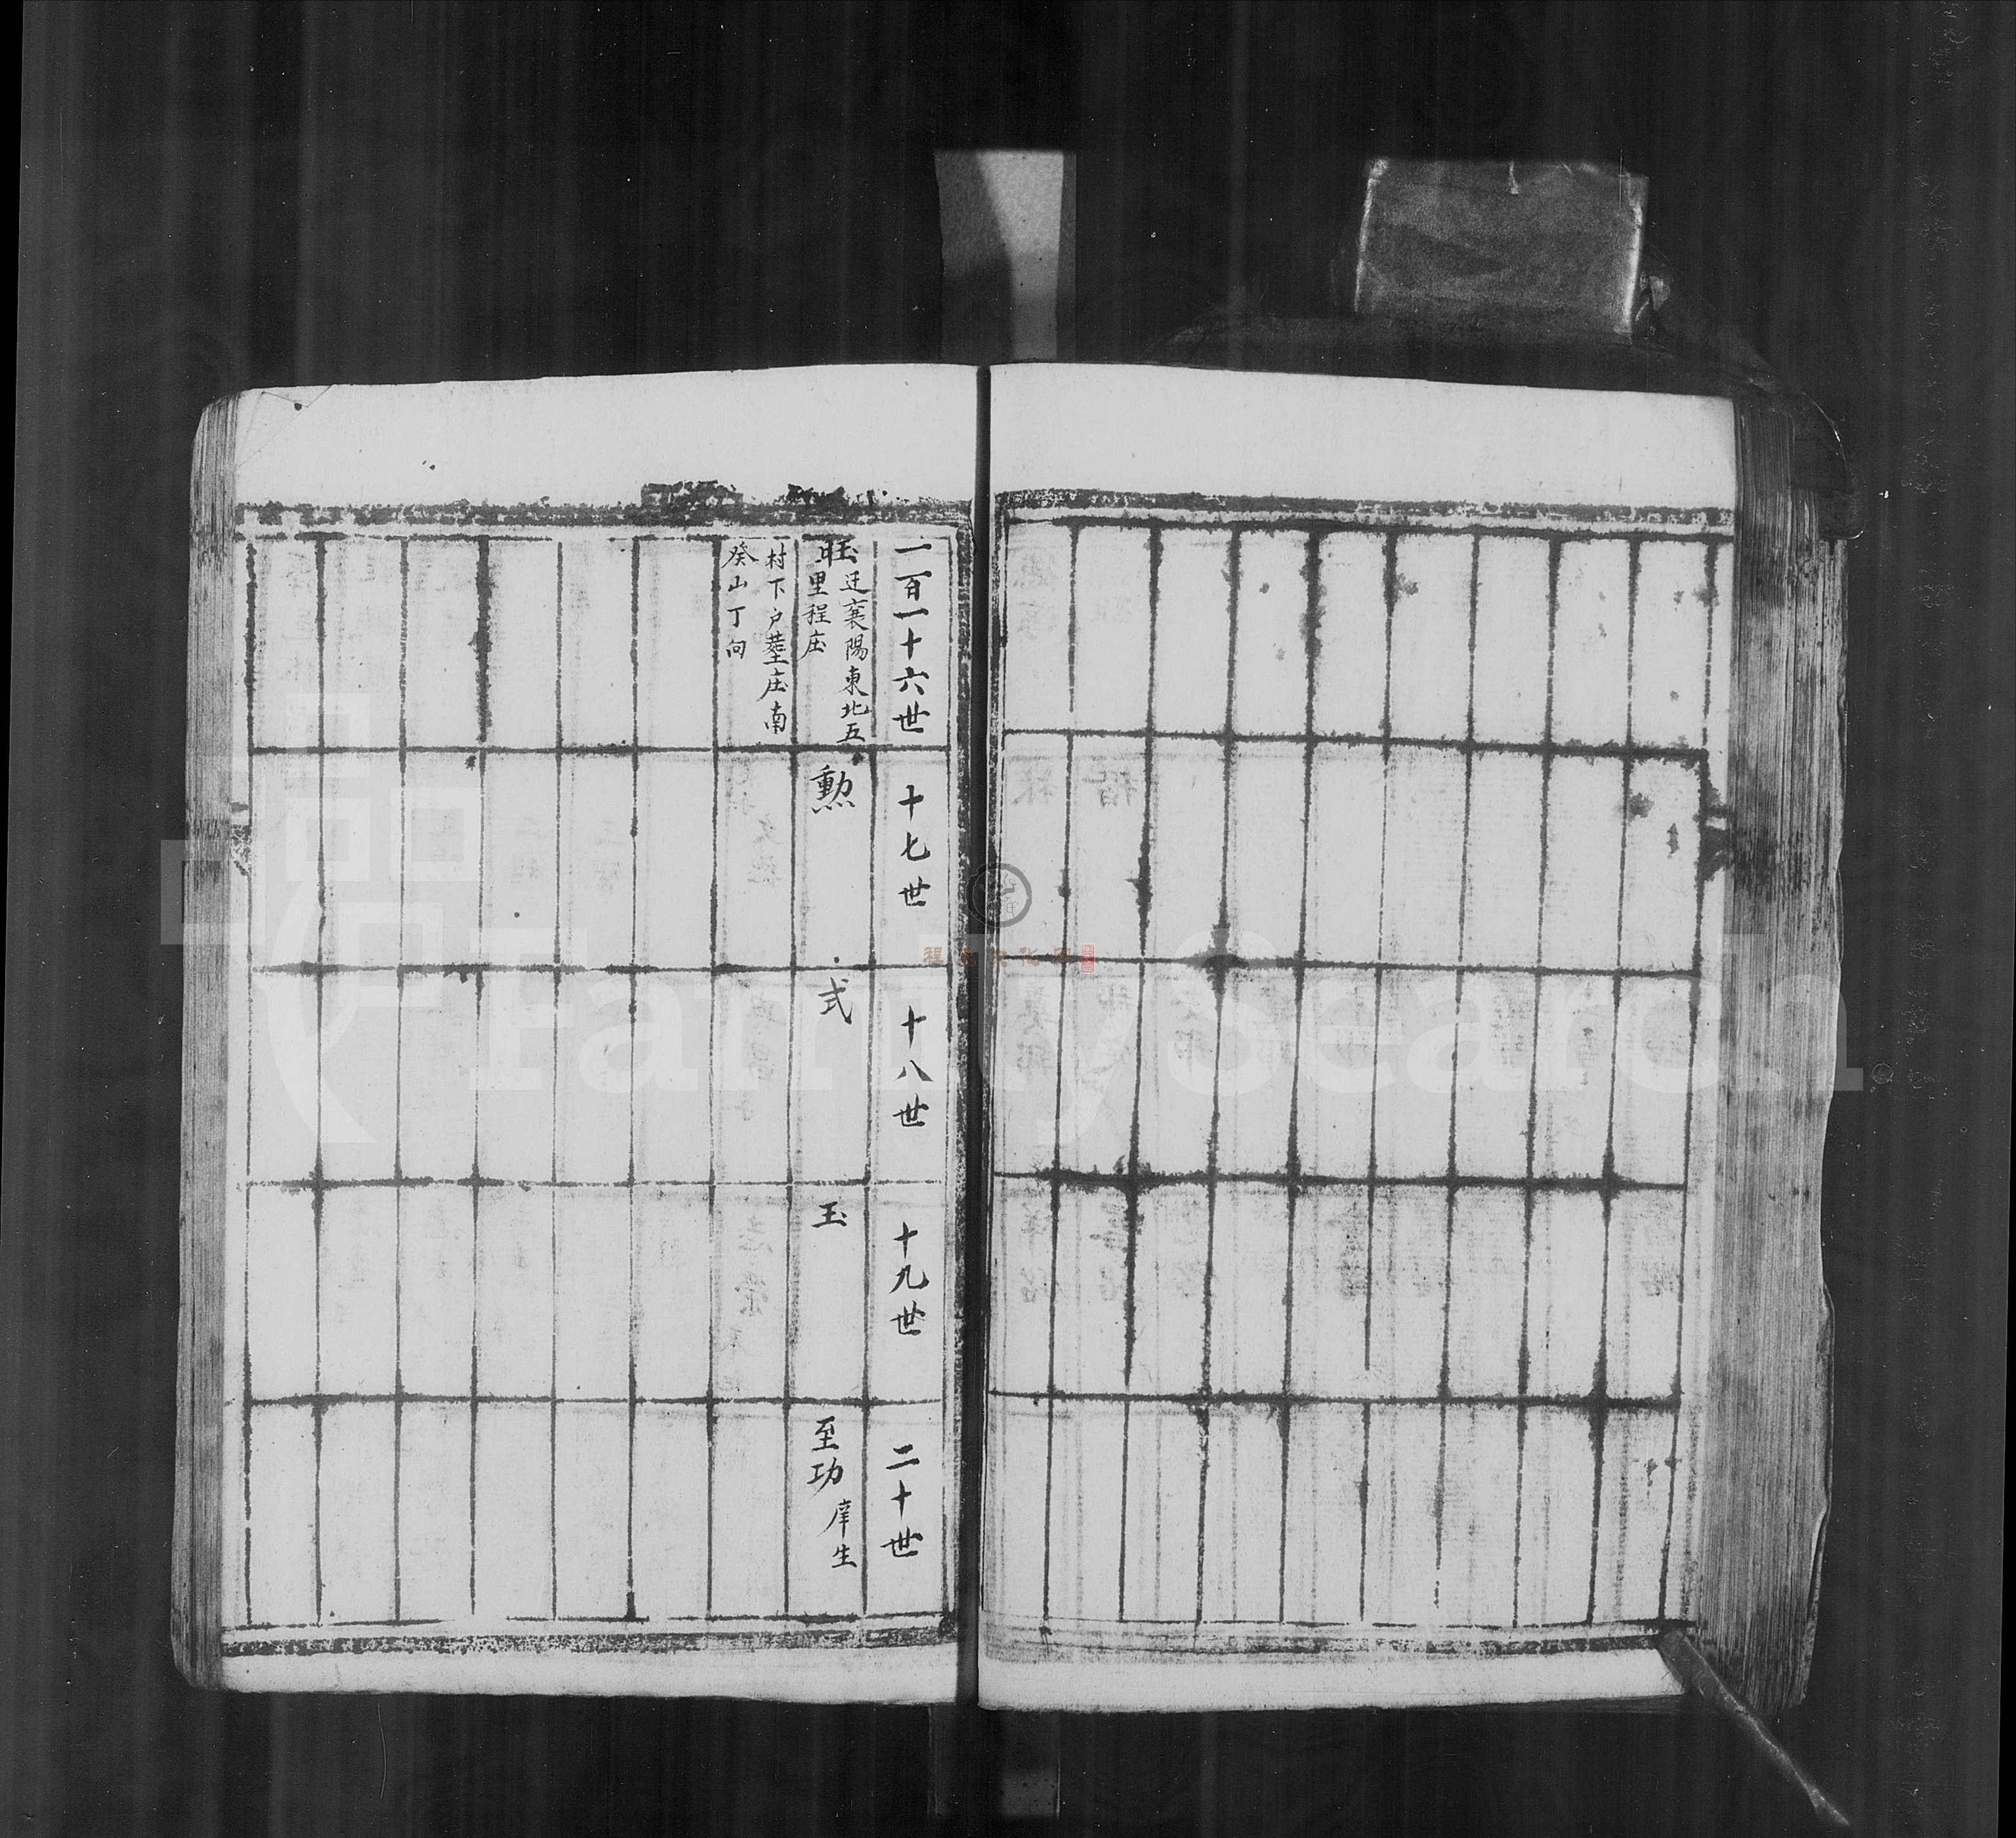 一百一十六世
十七世
十八世
十九世
二十世
迁襄陽東北五
里程庄
村下户塟庄南
癸山丁向
勲
式
玉
至功
庠生
FamilySearch